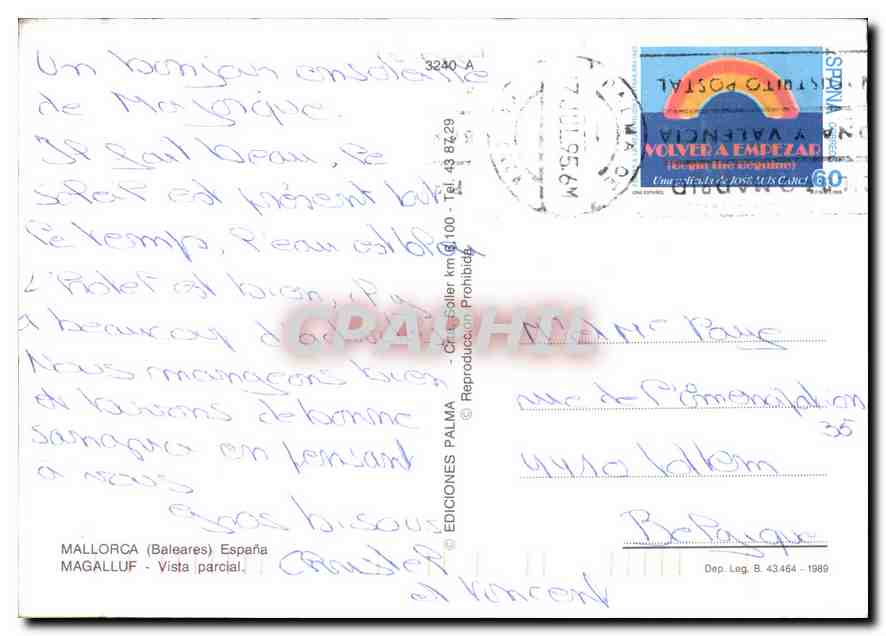 Un bonjour ensoleillé
de Majorque.
Il fait beau, le
soleil est présent tout
le temps, l'eau est bleu
L'hotel est bien, il y
a beaucoup d'ado
Nous mangeons bien
et buvons de bonne
sangria en pensant
à vous
Gros bisous
Christel
et Vincent
MALLORCA (Baleares) España
MAGALLUF - Vista parcial.
3240 A
© EDICIONES PALMA - Ctra. Soller km 6,100 - Tel. 43 87 29
© Reproducción Prohibida
CPAPHIL
17 JUL 95.6M
PALMA
DISTRITO POSTAL
Y VALENCIA
MADRID
ESPAÑA
CORREOS
VOLVER A EMPEZAR
(Begin the Beguine)
Una película de JOSÉ LUIS GARCI
60
CINE ESPAÑOL
M et Mme
rue de l'Émancipation
35
Belgique
Dep. Leg. B. 43.464 - 1989